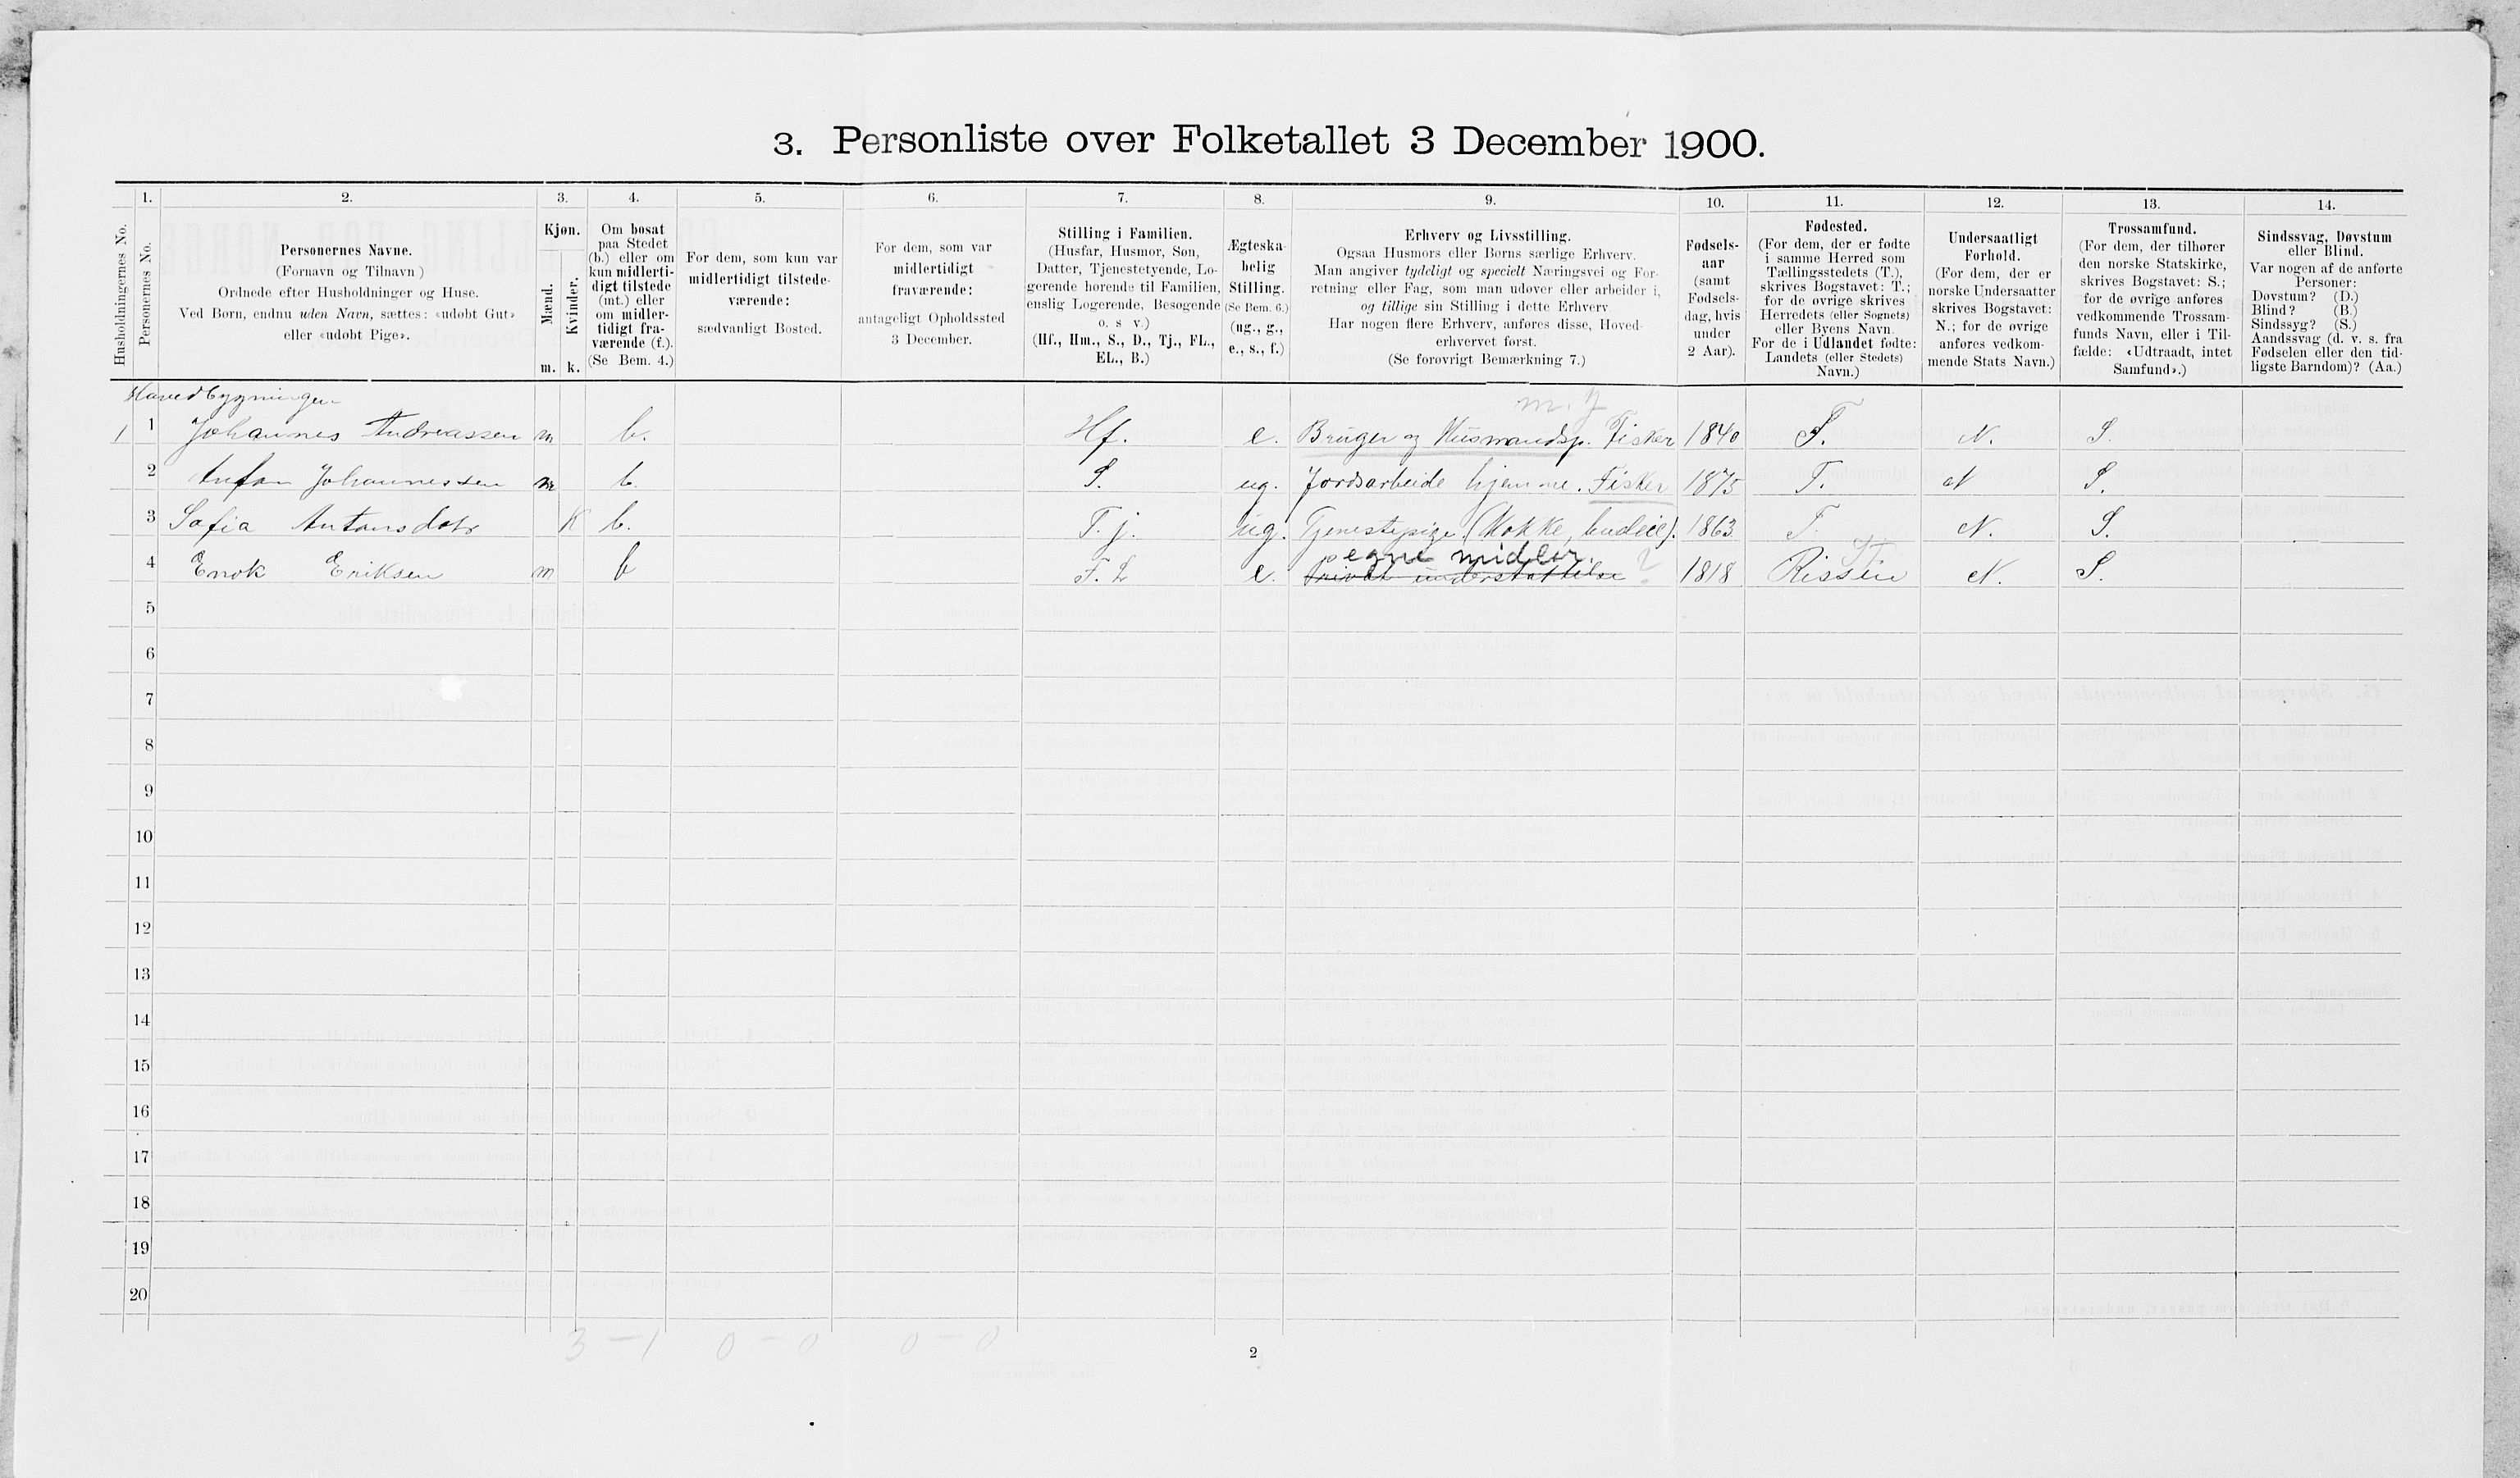 3. Personliste over Folketallet 3 December 1900.
Husholdningernes No.
1.
Personernes No.
2.
Personernes Navne.
(Fornavn og Tilnavn)
Ordnede efter Husholdninger og Huse.
Ved Børn, endnu uden Navn, sættes: «udøbt Gut»
eller «udøbt Pige».
3.
Kjøn.
Mænd.
Kvinder.
m. k.
4.
Om bosat
paa Stedet
(b.) eller om
kun midlerti-
digt tilstede
(mt.) eller
om midler-
tidigt fra-
værende (f.).
(Se Bem. 4.)
5.
For dem, som kun var
midlertidigt tilstede-
værende:
sædvanligt Bosted.
6.
For dem, som var
midlertidigt
fraværende:
antageligt Opholdssted
3 December.
7.
Stilling i Familien.
(Husfar, Husmor, Søn,
Datter, Tjenestetyende, Lo-
gerende hørende til Familien,
enslig Logerende, Besøgende
o. s v.)
(Hf., Hm., S., D., Tj., FL.,
EL., B.)
8.
Ægteska-
belig
Stilling.
(Se Bem. 6.)
(ug., g.,
e., s., f.)
9.
Erhverv og Livsstilling.
Ogsaa Husmors eller Børns særlige Erhverv.
Man angiver tydeligt og specielt Næringsvei og For-
retning eller Fag, som man udøver eller arbeider i,
og tillige sin Stilling i dette Erhverv.
Har nogen flere Erhverv, anføres disse, Hoved-
erhvervet først.
(Se forøvrigt Bemærkning 7.)
10.
Fødsels-
aar
(samt
Fødsels-
dag, hvis
under
2 Aar).
11.
Fødested.
(For dem, der er fødte
i samme Herred som
Tællingsstedets (T.),
skrives Bogstavet: T.;
for de øvrige skrives
Herredets (eller Sognets)
eller Byens Navn.
For de i Udlandet fødte:
Landets (eller Stedets)
Navn.)
12.
Undersaatligt
Forhold.
(For dem, der er
norske Undersaatter
skrives Bogstavet:
N.; for de øvrige
anføres vedkom-
mende Stats Navn.)
13.
Trossamfund.
(For dem, der tilhører
den norske Statskirke,
skrives Bogstavet: S.;
for de øvrige anføres
vedkommende Trossam-
funds Navn, eller i Til-
fælde: «Udtraadt, intet
Samfund».)
14.
Sindssvag, Døvstum
eller Blind.
Var nogen af de anførte
Personer:
Døvstum? (D.)
Blind? (B.)
Sindssyg? (S.)
Aandssvag (d. v. s. fra
Fødselen eller den tid-
ligste Barndom)? (Aa.)
Hovedbygningen
1 1 Johannes Andreassen m b. Hf. e. Bruger og Husmandsp. Fisker 1840 T. N. S.
2 Anton Johannessen m b. S. ug. Jordsarbeide hjemme. Fisker 1875 T. N S.
3 Sofia Antonsdatr K b. T. j. ug. Tjenestepige (Kokke, budeie). 1863 T. N. S.
egne midler.
4 Enok Eriksen m b F. L e. privat understøttelse ? 1818 Rissen N. S.
5
6
7
8
9
10
11
12
13
14
15
16
17
18
19
20
3 — 1 0 — 0 0 — 0
2